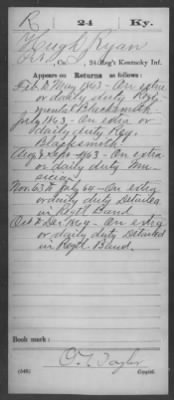 R | 24 | Ky.
Hugh Ryan
, Co. , 24 Reg't Kentucky Inf.
Appears on Returns as follows:
Feb. to May 1863 - On extra
or daily duty Regi-
mental Blacksmith
July 1863 - On extra or
daily duty Reg.
Blacksmith.
Aug & Sept 1863 - On extra
or daily duty Mu-
sician.
Nov. 63 to July 64 - On extra
or daily duty Detailed
in Regtl Band
Oct to Dec 1864 - On extra
or daily duty Detailed
in Regtl Band.
Book mark:
(546) Copyist.